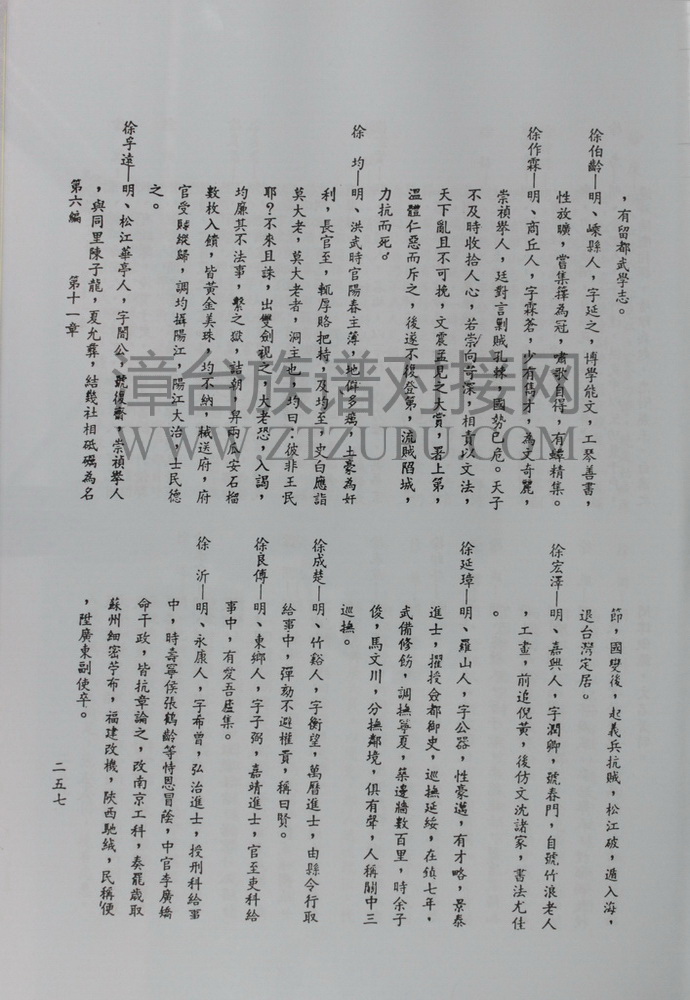 ，有留都武學志。
徐伯齡—明、嵊縣人，字延之，博學能文，工琴善書，
性放曠，嘗集籜為冠，嘯歌自得，有蟫精集。
徐作霖—明、商丘人，字霖蒼，少有儁才，為文奇麗，
崇禎舉人，廷對言剿賊孔棘，國勢已危。天子
不及時收拾人心，若崇向苛深，相責以文法，
天下亂且不可挽，文震孟見之大賞，置上第，
溫體仁惡而斥之，後遂不復登第，流賊陷城，
力抗而死。
徐　均—明、洪武時官陽春主薄，地僻多瘴，土豪為奸
利，長官至，輒厚賂把持，及均至，吏白應詣
莫大老，莫大老者，洞主也，均曰：彼非王民
耶？不來且誅，出雙劍視之，大老恐，入謁，
均廉其不法事，繫之獄，詰朝，舁兩瓜安石榴
數枚入饋，皆黃金美珠，均不納，械送府，府
官受賕縱歸，調均攝陽江，陽江大治，士民德
之。
徐孚遠—明、松江華亭人，字闇公，號復齋，崇禎舉人
，與同里陳子龍，夏允彝，結幾社相砥礪為名
第六編　第十一章
節，國變後，起義兵抗賊，松江破，遁入海，
退台灣定居。
徐宏澤—明、嘉興人，字潤卿，號春門，自號竹浪老人
，工畫，前追倪黃，後仿文沈諸家，書法尤佳
。
徐延璋—明、羅山人，字公器，性豪邁，有才略，景泰
進士，擢授僉都御史，巡撫延綏，在鎮七年，
武備修飭，調撫寧夏，築邊牆數百里，時余子
俊，馬文川，分撫鄰境，俱有聲，人稱關中三
巡撫。
徐成楚—明、竹谿人，字衡望，萬曆進士，由縣令行取
給事中，彈劾不避權貴，稱曰賢。
徐良傅—明、東鄉人，字子弼，嘉靖進士，官至吏科給
事中，有愛吾廬集。
徐　沂—明、永康人，字希曾，弘治進士，授刑科給事
中，時壽寧侯張鶴齡等恃恩冒蔭，中官李廣矯
命干政，皆抗章論之，改南京工科，奏罷歲取
蘇州細密苧布，福建改機，陝西馳絨，民稱便
，陞廣東副使卒。
二五七
漳台族谱对接网
WWW.ZTZUPU.COM